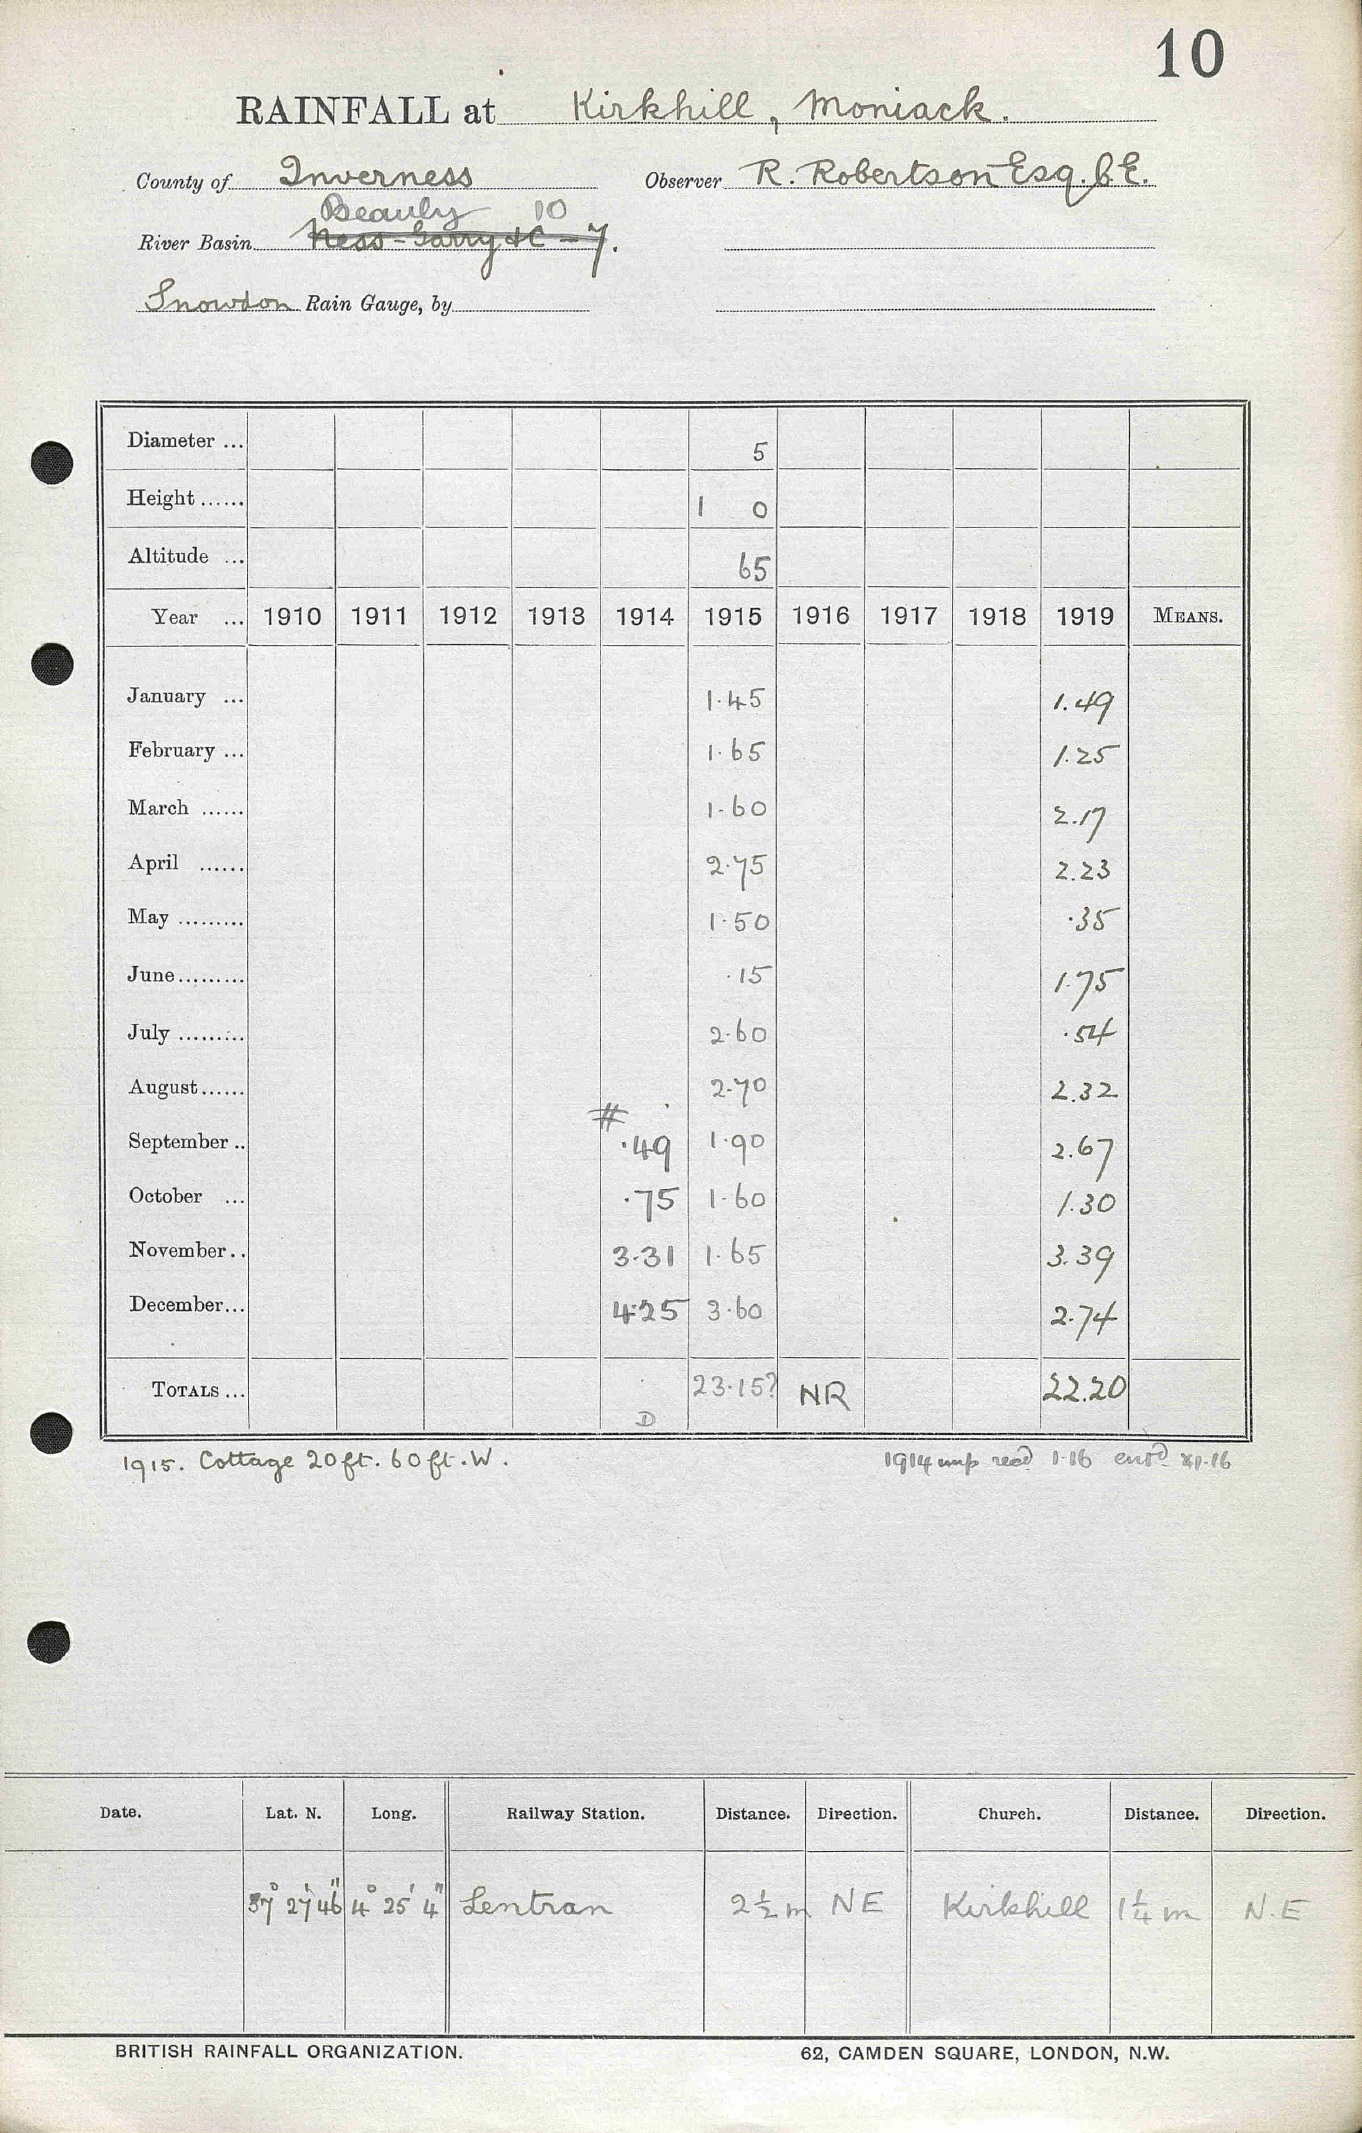 10
RAINFALL at Kirkhill, Moniack.
County of Inverness Observer R. Robertson Esq. C.E.
Beauly 10
River Basin Ness-Garry &c - 7.
Snowdon Rain Gauge, by
Diameter ... 5
Height ...... 1 0
Altitude ... 65
Year ... 1910 1911 1912 1913 1914 1915 1916 1917 1918 1919 MEANS.
January ... 1.45 1.49
February ... 1.65 1.25
March ...... 1.60 2.17
April ...... 2.75 2.23
May ......... 1.50 .35
June......... .15 1.75
July ......... 2.60 .54
August...... 2.70 2.32
#
September .. .49 1.90 2.67
October ... .75 1.60 1.30
November.. 3.31 1.65 3.39
December... 4.25 3.60 2.74
TOTALS ... 23.15? NR 22.20
D
1915. Cottage 20ft. 60ft. W. 1914 recd 1-16 entd XI-16
Date. Lat. N. Long. Railway Station. Distance. Direction. Church. Distance. Direction.
57° 27' 46" 4° 25' 4" Lentran 2½ m NE Kirkhill 1¼ m N.E
BRITISH RAINFALL ORGANIZATION. 62, CAMDEN SQUARE, LONDON, N.W.